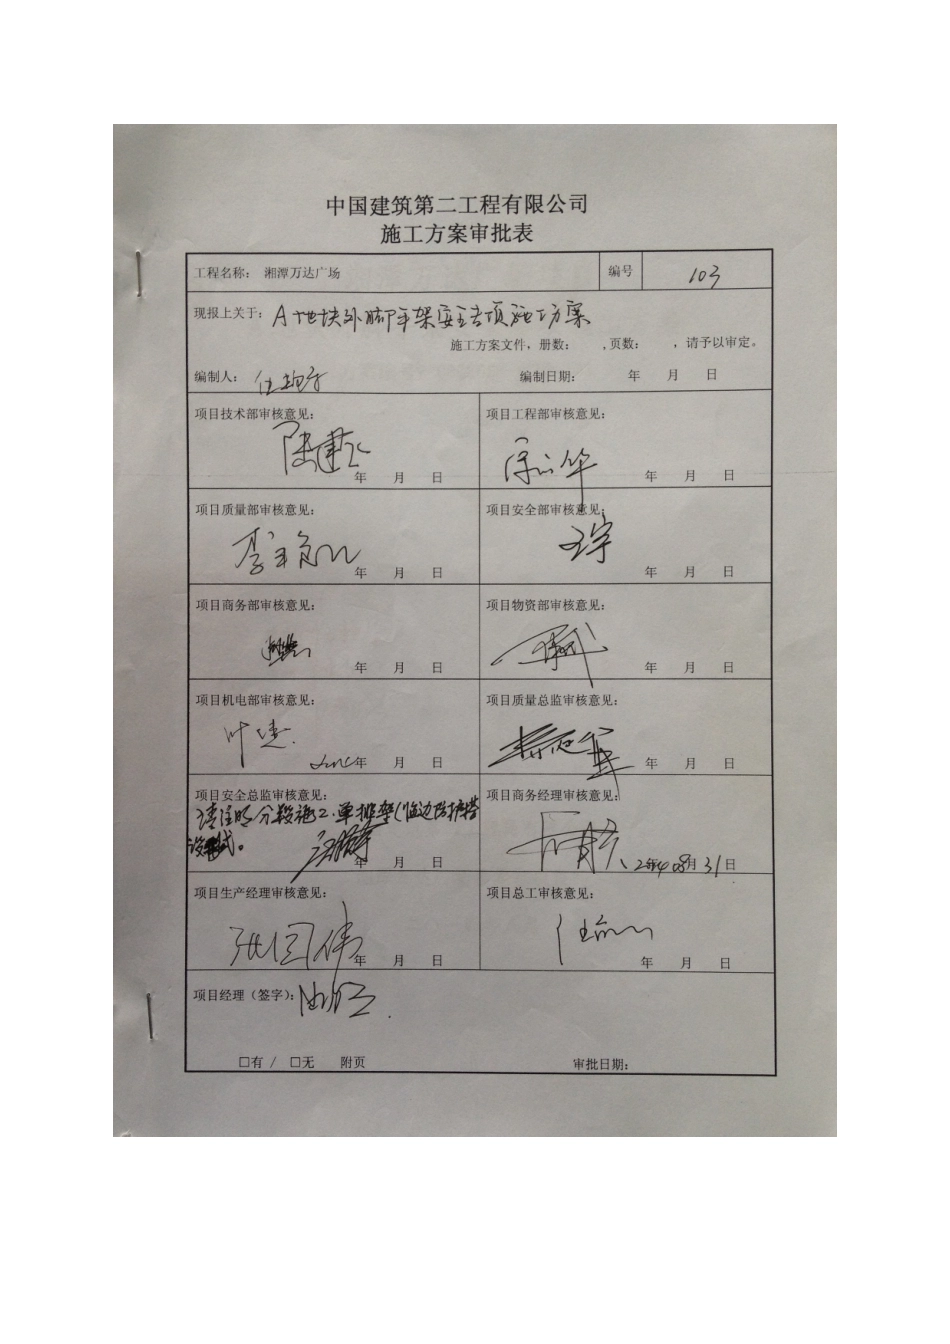 中国建筑第二工程有限公司
施工方案审批表
工程名称: 湘潭万达广场 编号 103
现报上关于: A地块外脚手架安全专项施工方案
施工方案文件,册数: ,页数: ,请予以审定。
编制人: 编制日期: 年 月 日
项目技术部审核意见: 项目工程部审核意见:
年 月 日 年 月 日
项目质量部审核意见: 项目安全部审核意见:
王宇
年 月 日 年 月 日
项目商务部审核意见: 项目物资部审核意见:
年 月 日 年 月 日
项目机电部审核意见: 项目质量总监审核意见:
年 月 日 年 月 日
项目安全总监审核意见: 项目商务经理审核意见:
请注明分段施工.单排架(临边防护搭
设
年 月 日 2014年08月31日
项目生产经理审核意见: 项目总工审核意见:
张国伟
年 月 日 年 月 日
项目经理(签字):
□有 / □无 附页 审批日期: